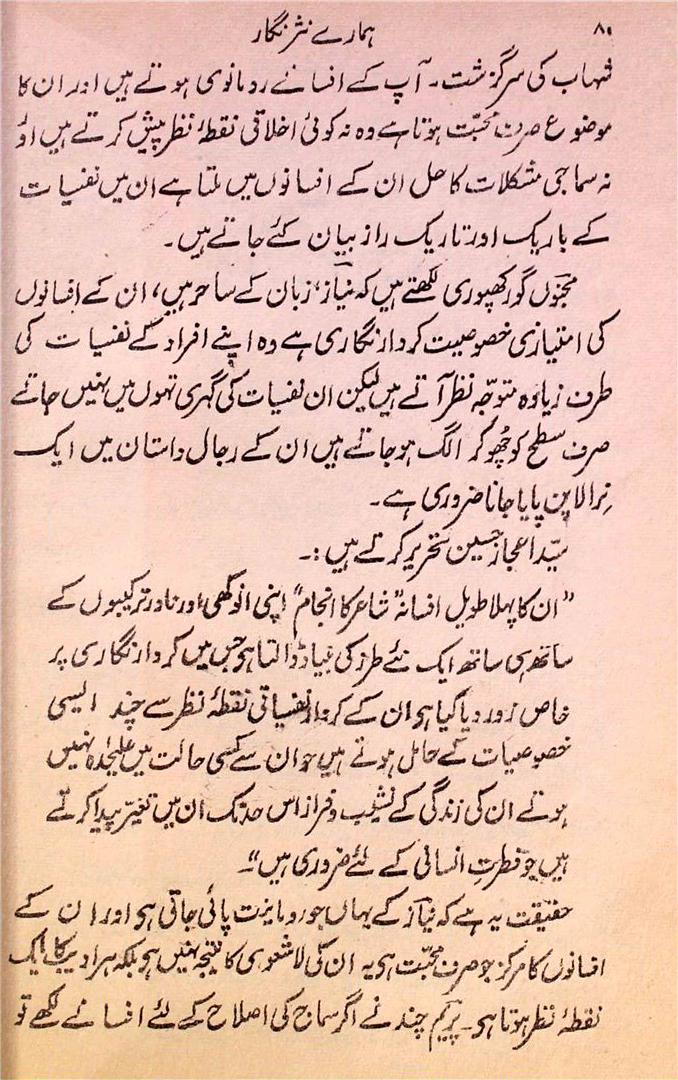 ۸۰
ہمارے نثر نگار
شہاب کی سرگزشت۔ آپ کے افسانے رومانوی ہوتے ہیں اور ان کا
موضوع صرف محبّت ہوتا ہے وہ نہ کوئی اخلاقی نقطۂ نظر پیش کرتے ہیں اور
نہ سماجی مشکلات کا حل ان کے افسانوں میں ملتا ہے ان میں نفسیات
کے باریک اور تاریک راز بیان کئے جاتے ہیں۔
مجنوں گورکھپوری لکھتے ہیں کہ نیاز، زبان کے ساحر ہیں، ان کے افسانوں
کی امتیازی خصوصیت کردار نگاری ہے وہ اپنے افراد کے نفسیات کی
طرف زیادہ متوجّہ نظر آتے ہیں لیکن ان نفسیات کی گہری تہوں میں نہیں جاتے
صرف سطح کو چھو کر الگ ہو جاتے ہیں ان کے رجال داستان میں ایک
نرالا پن پایا جانا ضروری ہے۔
سیّد اعجاز حسین تحریر کرتے ہیں :۔
”ان کا پہلا طویل افسانہ ”شاعر کا انجام“ اپنی انوکھی اور نادر ترکیبوں کے
ساتھ ہی ساتھ ایک نئے طرز کی بنیاد ڈالتا ہو جس میں کردار نگاری پر
خاص زور دیا گیا ہو ان کے کردار نفسیاتی نقطۂ نظر سے چند ایسی
خصوصیات کے حامل ہوتے ہیں جو ان سے کسی حالت میں علیحدہ نہیں
ہوتے ان کی زندگی کے نشیب و فراز اس حد تک ان میں تغیّر پیدا کرتے
ہیں جو فطرتِ انسانی کے لئے ضروری ہیں“۔
حقیقت یہ ہے کہ نیاز کے یہاں جو رومانیت پائی جاتی ہو اور ان کے
افسانوں کا مرکز جو صرف محبّت ہو یہ ان کی لا شعوری کا نتیجہ نہیں ہو بلکہ ہر ادیب کا ایک
نقطۂ نظر ہوتا ہو۔ پریم چند نے اگر سماج کی اصلاح کے لئے افسانے لکھے تو